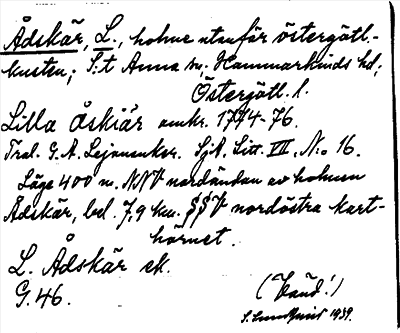 Ådskär, L., holme utanför östergötl.-
kusten; S:t Anna sn; Hammarkinds hd;
Östergötl. l.
Lilla Åskiär omkr. 1774-76.
Tral. G. A. Lejonanker. Sjk. Litt. VII. N:o 16.
Läge 400 m. NNV nordändan av holmen
Ådskär, bel. 7,9 km. SSV nordöstra kart-
hörnet.
L. Ådskär ek.
G. 46.
S. Lundqvist 1939.